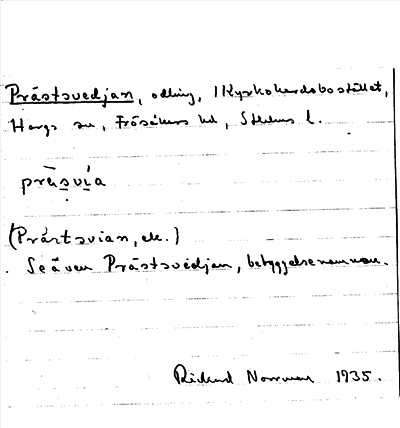 Prästsvedjan, odling, 1 Kyrkoherdebostället,
Hargs sn, Frösåkers hd, Sthlms l.
präsvia
(Prästsvian, etc.)
Se även Prästsvedjan, bebyggelsenamn.
Rickard Norrman 1935.